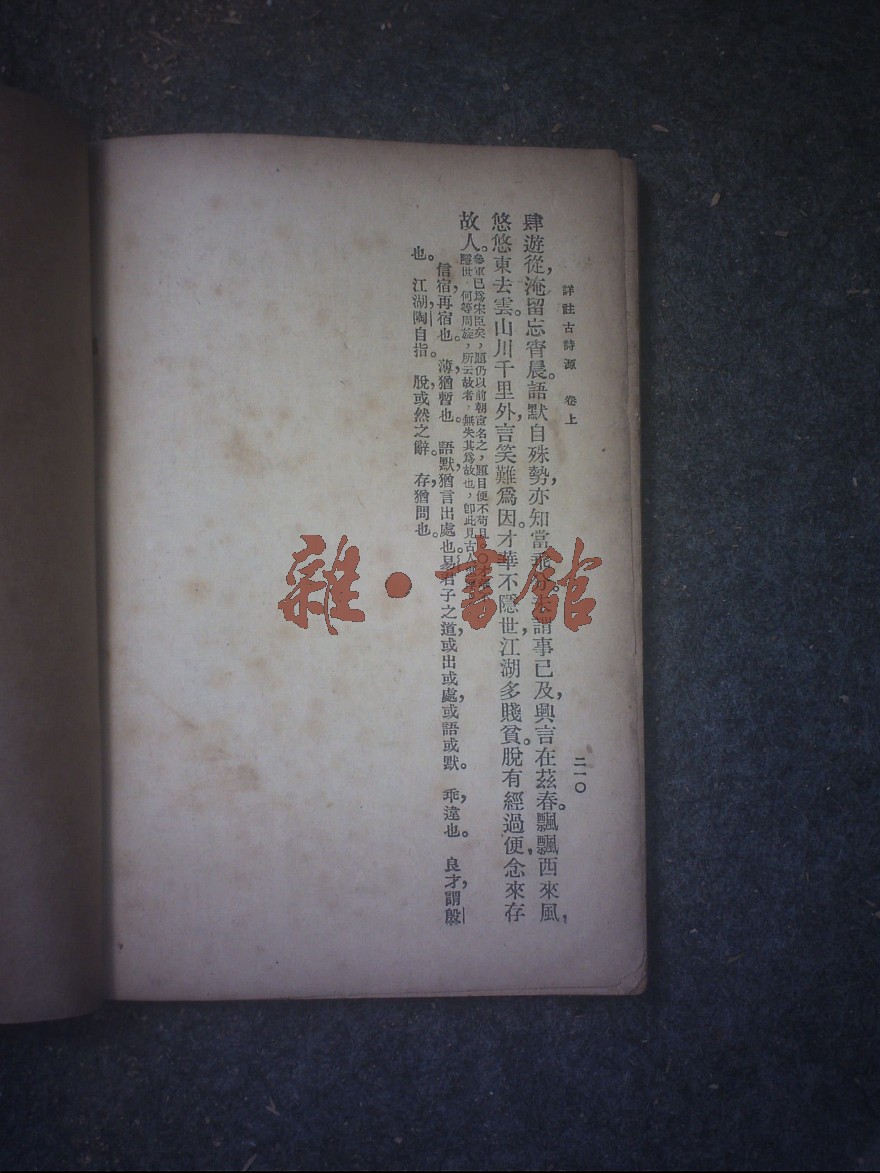 詳註古詩源 卷上
二一〇
肆遊從，淹留忘宵晨。語默自殊勢，亦知當乖謂事已及，興言在茲春。飄飄西來風，
悠悠東去雲。山川千里外，言笑難爲因。才華不隱世，江湖多賤貧。脫有經過便，念來存
故人。參軍已爲宋臣矣，題仍以前朝官名之，題目便不苟且
隱世，何等周旋，所云故者，無失其爲故也，卽此見古人
信宿，再宿也。 薄，猶暫也。 語默，猶言出處也。易，君子之道，或出或處，或語或默。 乖，違也。 良才，謂殷
也。 江湖，陶自指。 脫，或然之辭。 存，猶問也。
雜·書館